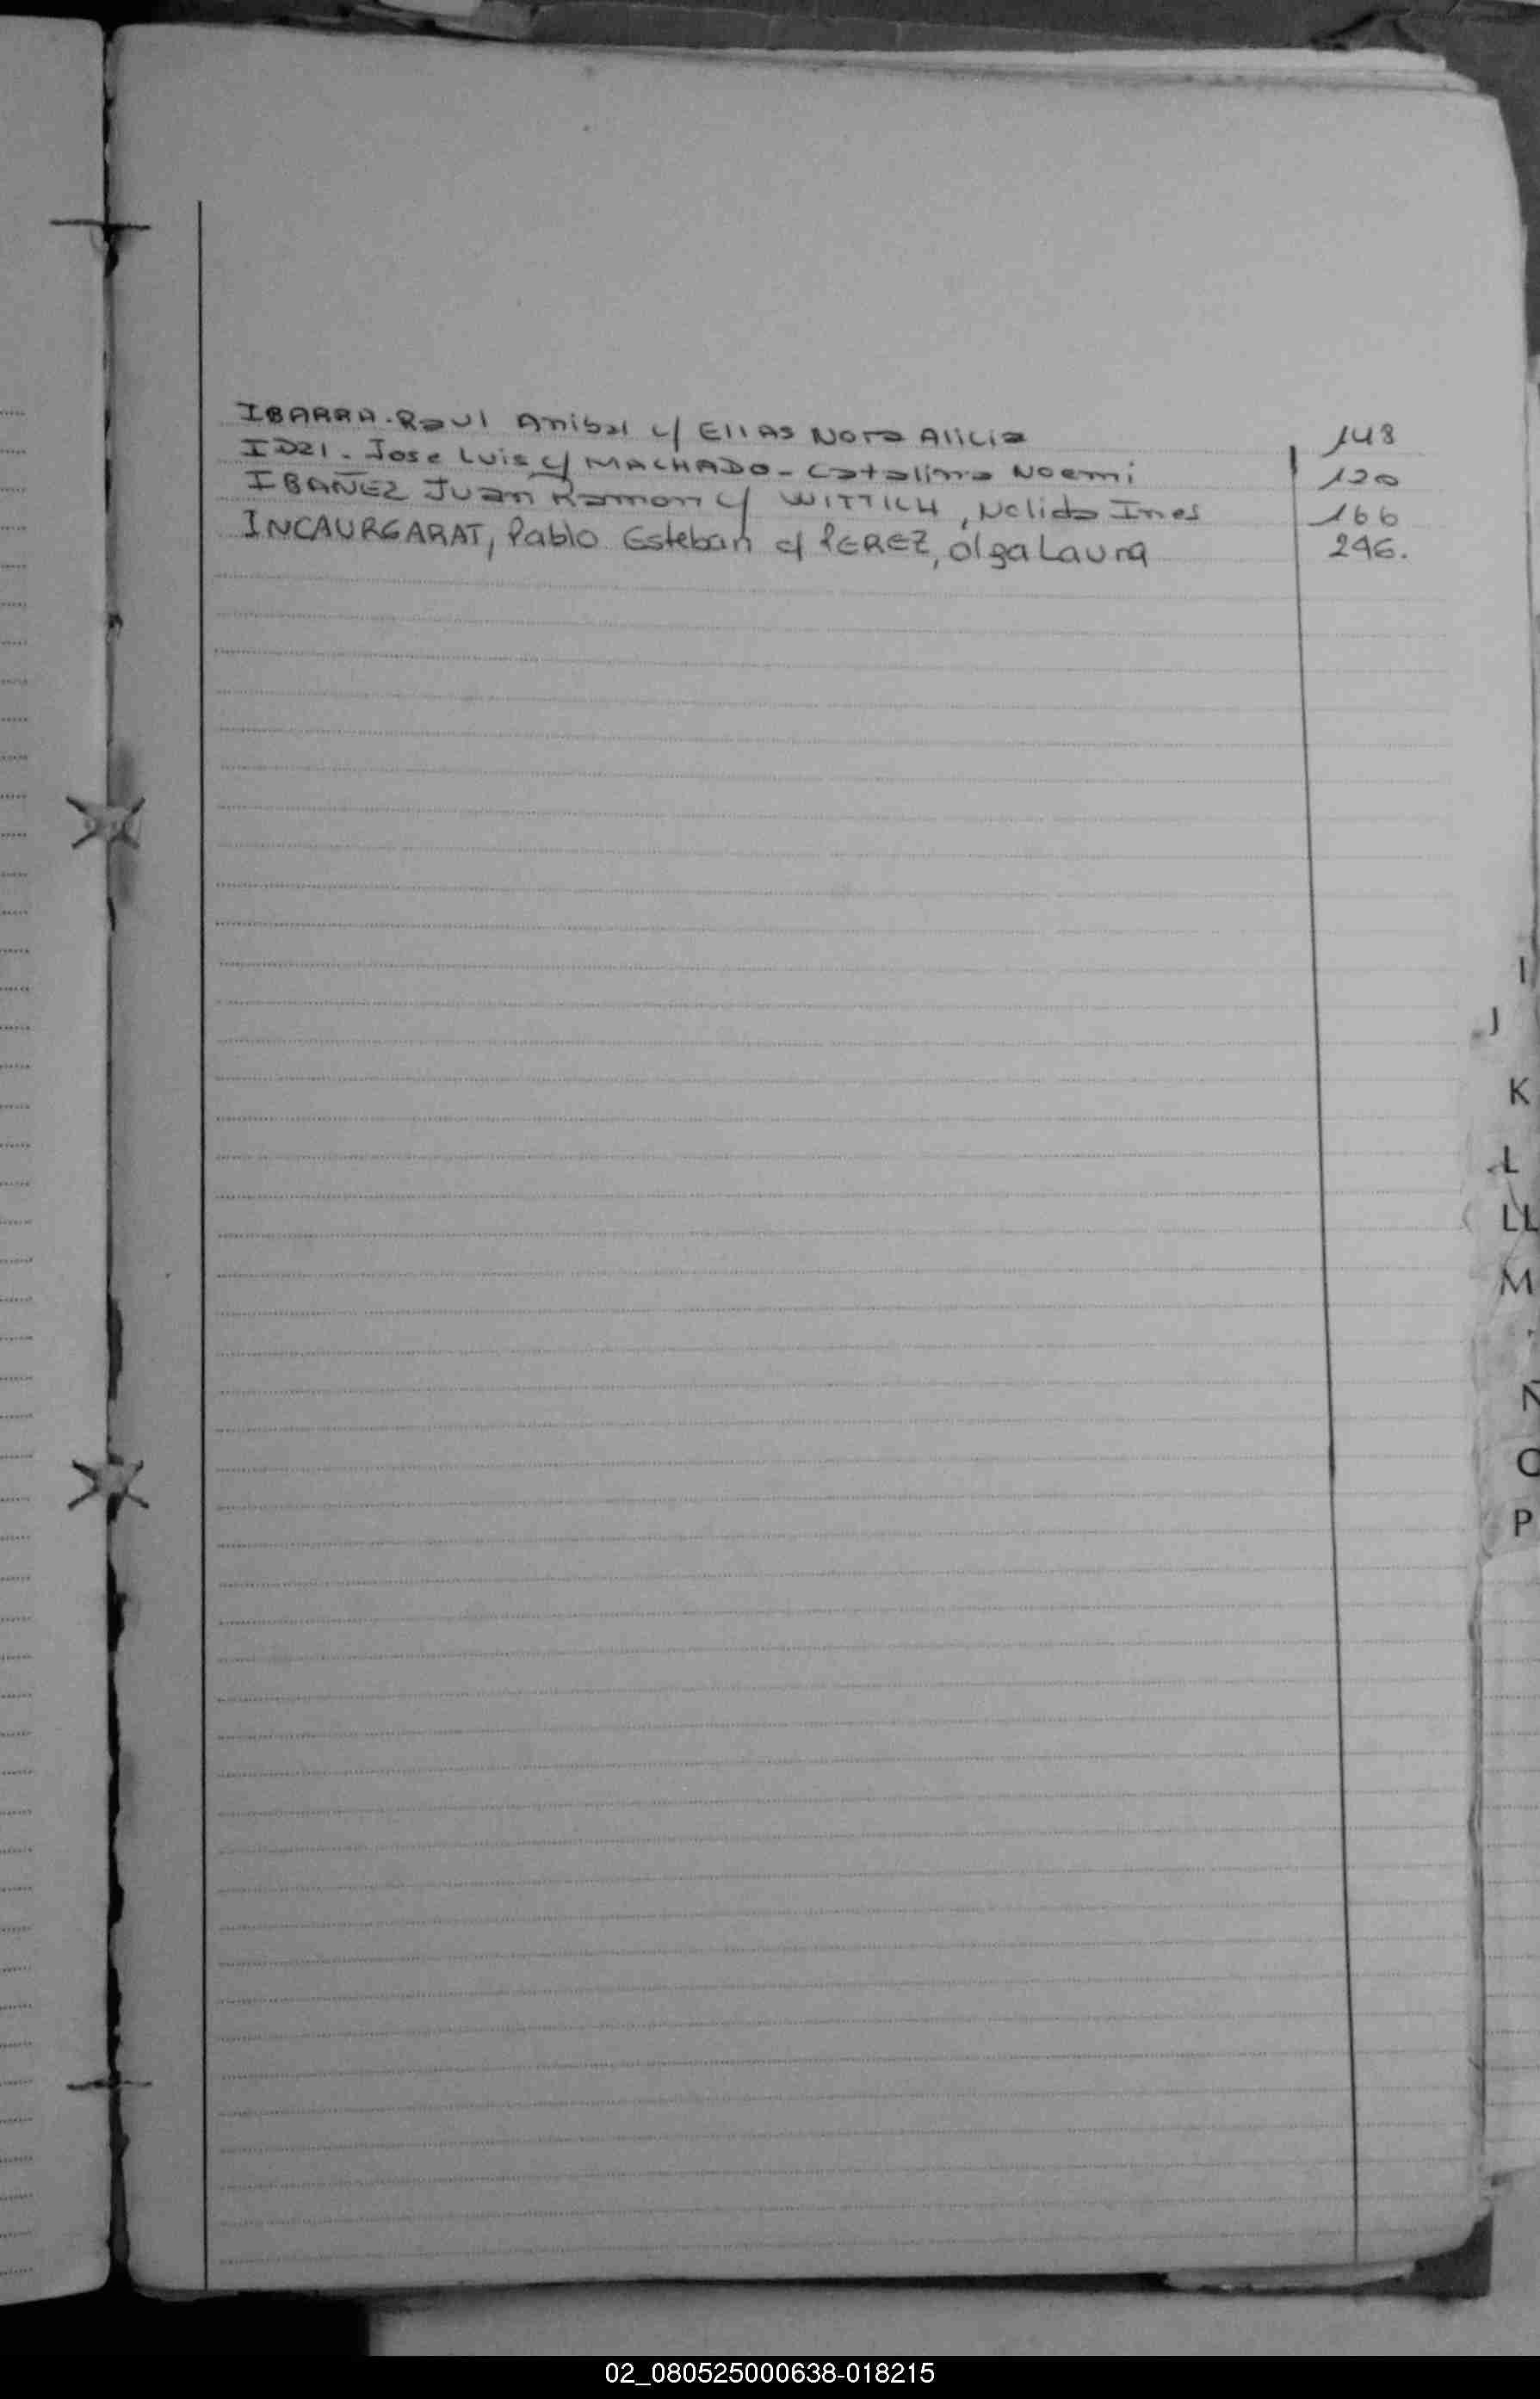 IBARRA. Raul Anibal c/ Elias Nora Alicia 148
IDZI. Jose Luis c/ MACHADO - Catalina Noemi 120
IBAÑEZ Juan Ramon c/ WITTICH, Nelida Ines 166
INCAURGARAT, Pablo Esteban c/ PEREZ, Olga Laura 246.
I
J
K
L
LL
M
N
O
P
02_080525000638-018215